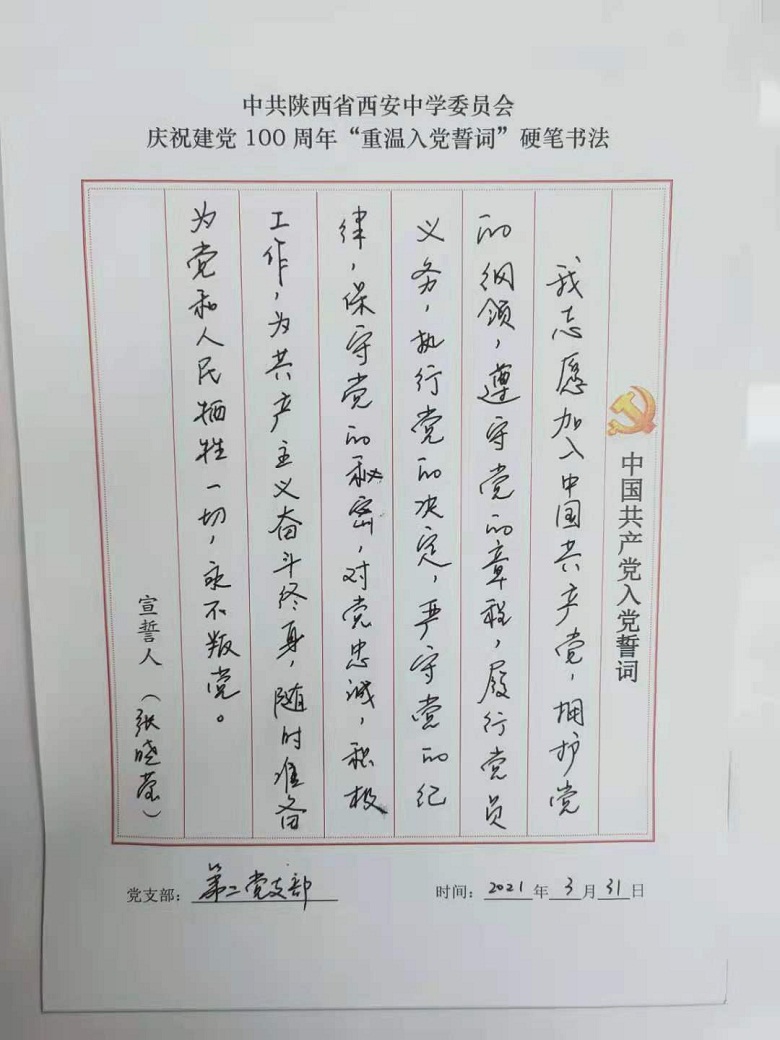 中共陕西省西安中学委员会
庆祝建党 100 周年“重温入党誓词”硬笔书法
中国共产党入党誓词
我志愿加入中国共产党，拥护党
的纲领，遵守党的章程，履行党员
义务，执行党的决定，严守党的纪
律，保守党的秘密，对党忠诚，积极
工作，为共产主义奋斗终身，随时准备
为党和人民牺牲一切，永不叛党。
宣誓人（张晓莹）
党支部：第二党支部
时间：2021年3月31日